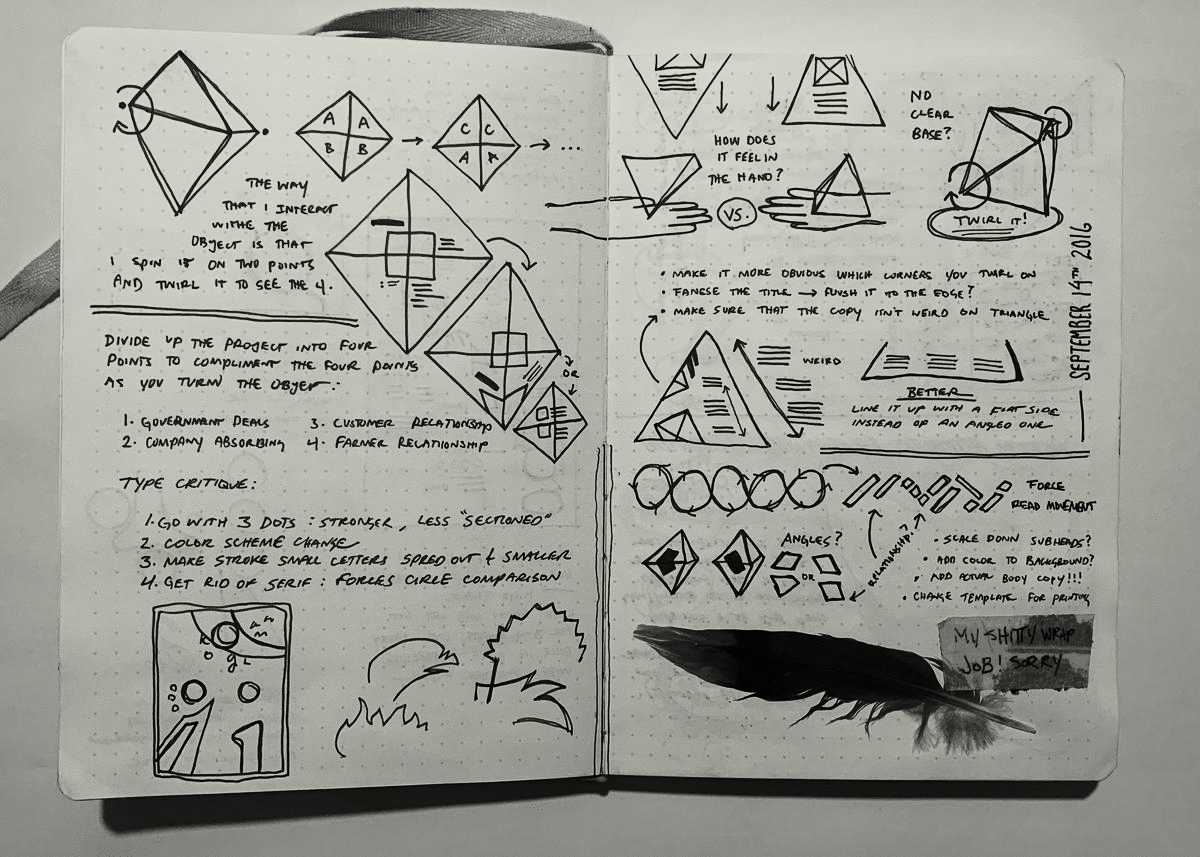 A A
B B
C C
A A
...
THE WAY
THAT I INTERACT
WITHE THE
OBJECT IS THAT
I SPIN IT ON TWO POINTS
AND TWIRL IT TO SEE THE 4.
DIVIDE UP THE PROJECT INTO FOUR
POINTS TO COMPLIMENT THE FOUR POINTS
AS YOU TURN THE OBJECT:
1. GOVERNMENT DEALS
2. COMPANY ABSORBING
3. CUSTOMER RELATIONSHIP
4. FARMER RELATIONSHIP
OR
TYPE CRITIQUE:
1. GO WITH 3 DOTS : STRONGER, LESS "SECTIONED"
2. COLOR SCHEME CHANGE
3. MAKE STROKE SMALL LETTERS SPRED OUT & SMALLER
4. GET RID OF SERIF : FORCES CIRLE COMPARISON
HOW DOES
IT FEEL IN
THE HAND?
VS.
NO
CLEAR
BASE?
TWIRL IT!
SEPTEMBER 14TH 2016
• MAKE IT MORE OBVIOUS WHICH CORNERS YOU TWIRL ON
• THE TITLE → PUSH IT TO THE EDGE?
• MAKE SURE THAT THE COPY ISN'T WEIRD ON TRIANGLE
WEIRD
BETTER
LINE IT UP WITH A FLAT SIDE
INSTEAD OF AN ANGLED ONE
FORCE
READ MOVEMENT
ANGLES?
OR
RELATIONSHIP?
• SCALE DOWN SUBHEADS?
• ADD COLOR TO BACKGROUND?
• ADD ACTUAL BODY COPY!!!
• CHANGE TEMPLATE FOR PRINTING
MY SHITTY WRAP
JOB! SORRY